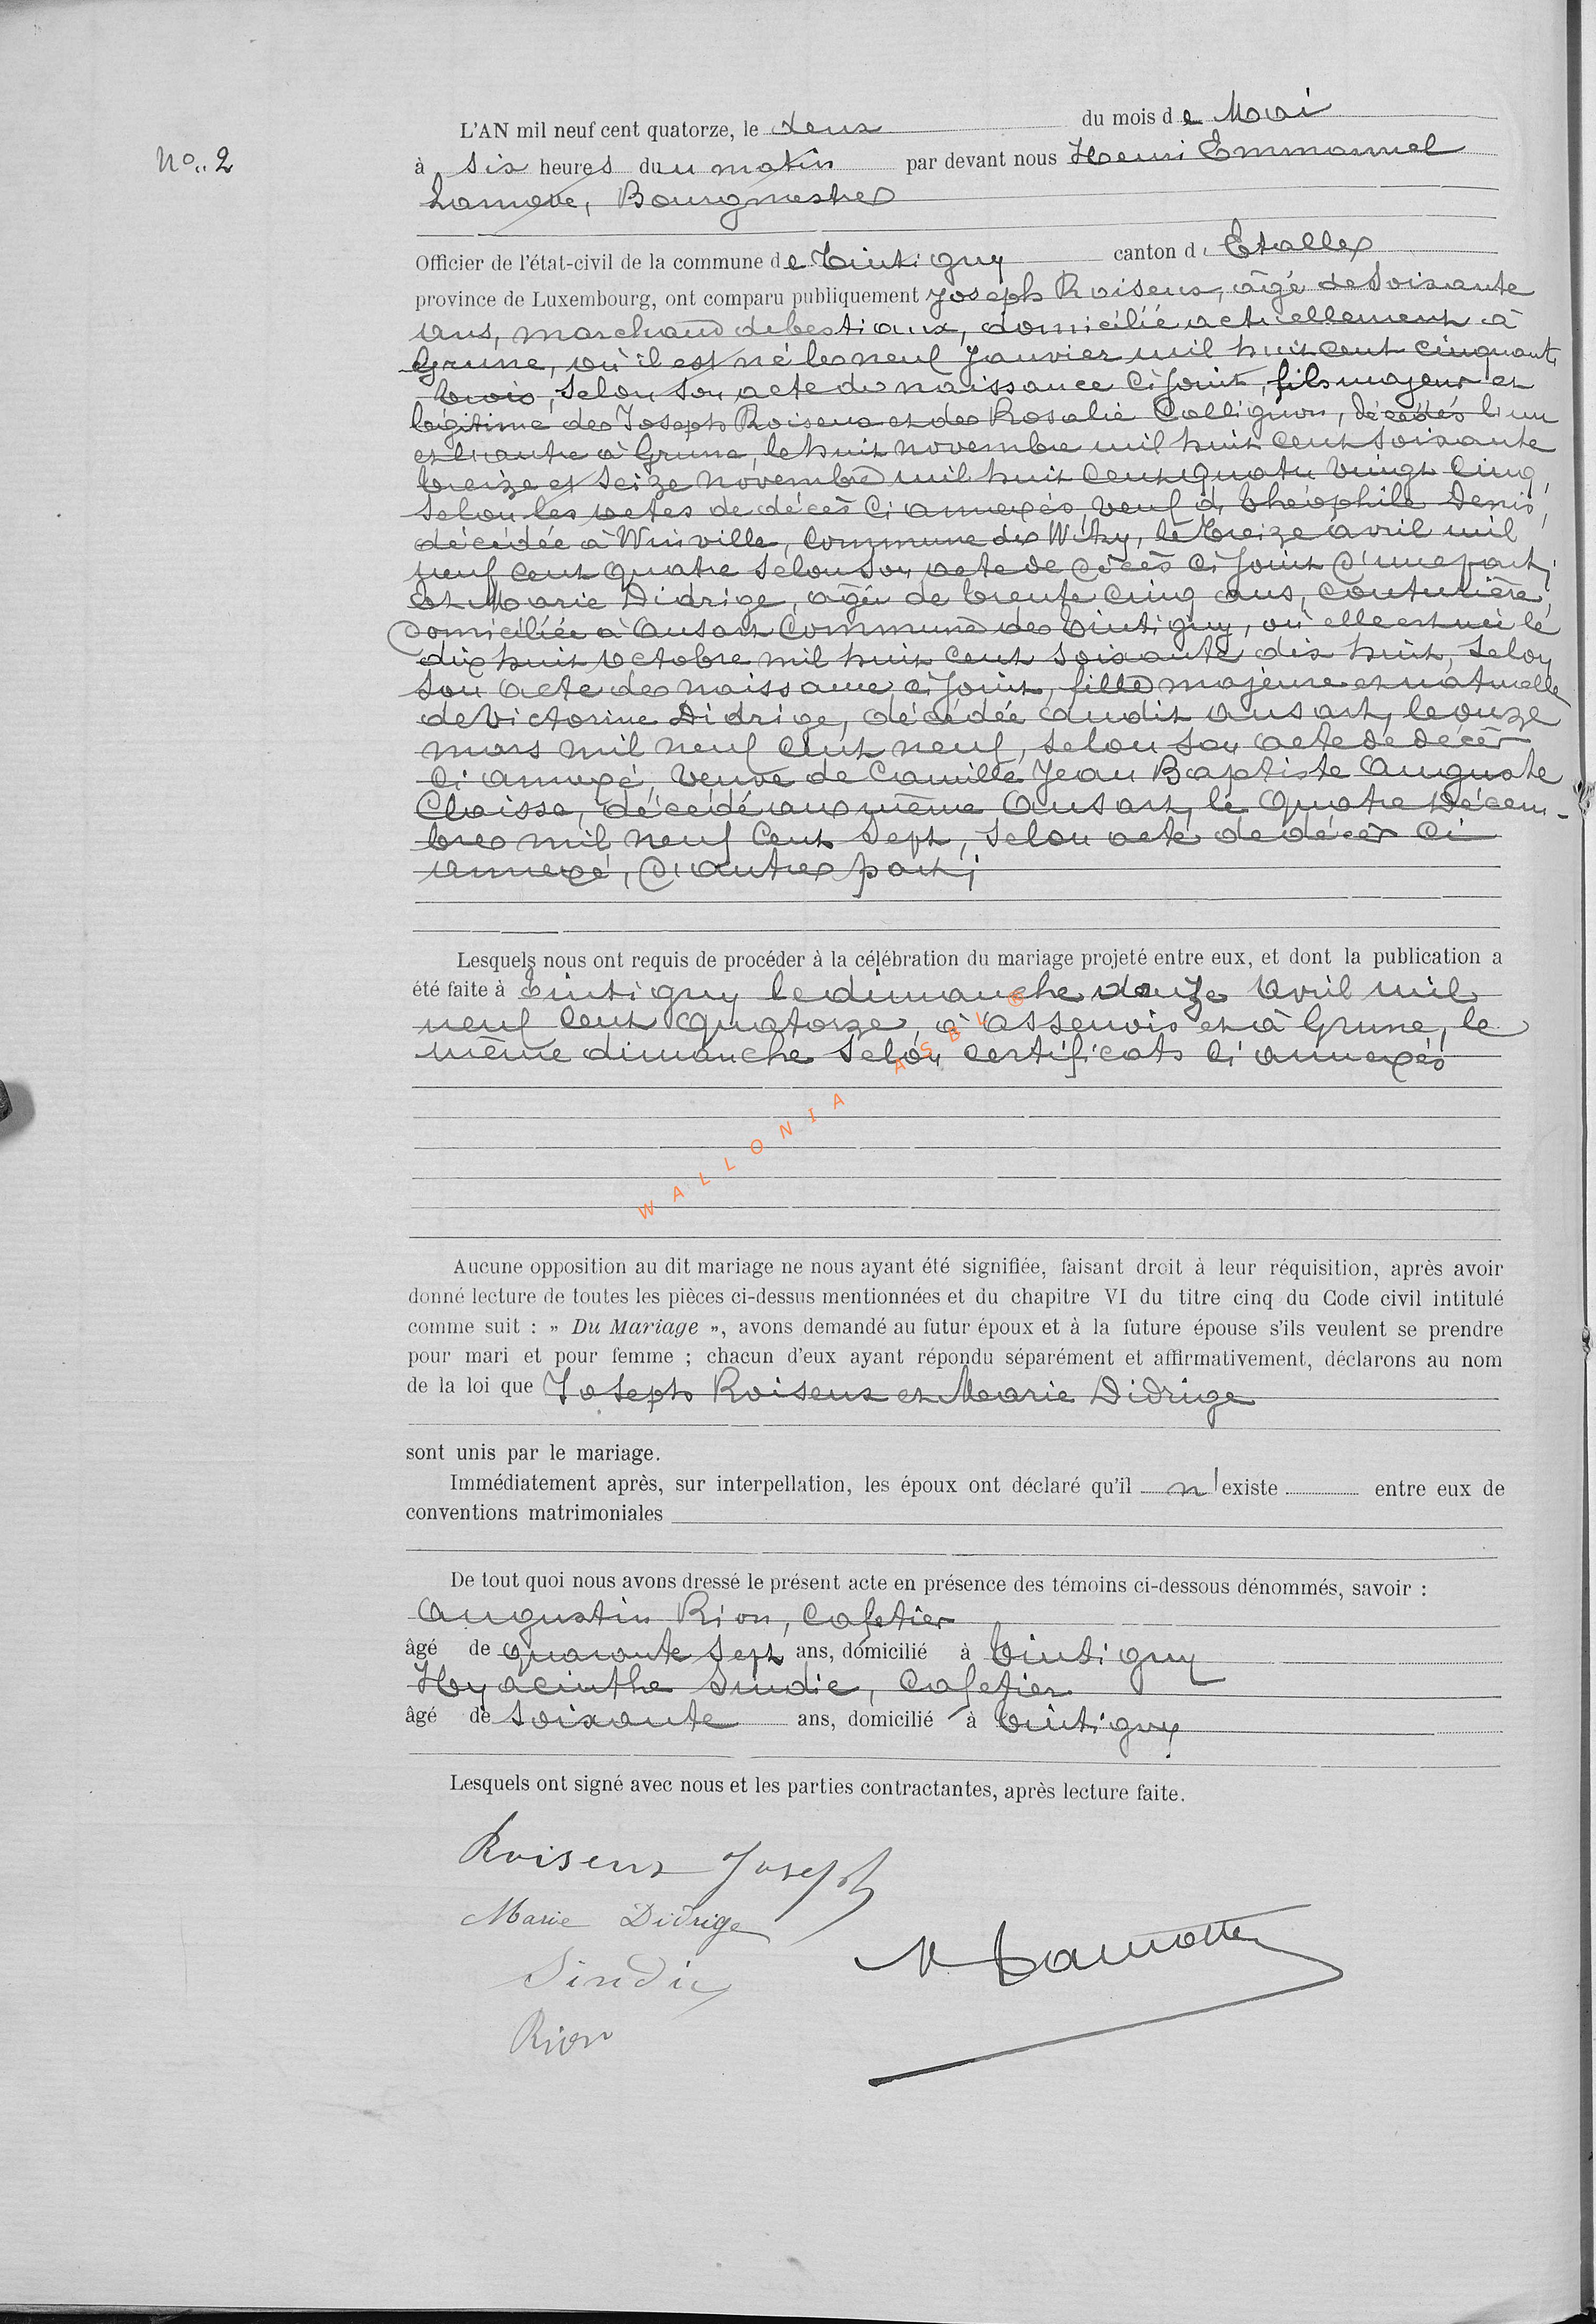 L'AN mil neuf cent quatorze, le deux du mois de Mai
No. 2 à six heures du matin par devant nous Henri Emmanuel
Lamotte, Bourgmestre
Officier de l'état-civil de la commune de Tintigny canton d' Etalle
province de Luxembourg, ont comparu publiquement Joseph Roiseux, âgé de soixante
ans, marchand de bestiaux, domicilié actuellement à
Grune, où il est né le neuf Janvier mil huit cent cinquante
trois, selon son acte de naissance ci joint, fils majeur et
légitime de Joseph Roiseux et de Rosalie Collignon, décédés l'un
et l'autre à Grune, le huit novembre mil huit cent soixante
treize et seize novembre mil huit cent quatre vingt cinq,
selon les actes de décès ci annexés, veuf de Théophile Denis,
décédée à Winville, commune de Witry, le treize avril mil
neuf cent quatre selon son acte de décès ci joint d'une part;
et Marie Didrige, âgée de trente cinq ans, couturière,
domiciliée à Ansart commune de Tintigny, où elle est née le
dix huit octobre mil huit cent soixante dix huit, selon
son acte de naissance ci joint, fille majeure et naturelle
de Victorine Didrige, décédée audit Ansart, le onze
mars mil neuf cent neuf, selon son acte de décès
ci annexé, veuve de Camille Jean Baptiste Auguste
Claisse, décédé au même Ansart, le quatre décem-
bre mil neuf cent sept, selon acte de décès ci
annexé, d'autre part;
Lesquels nous ont requis de procéder à la célébration du mariage projeté entre eux, et dont la publication a
été faite à Tintigny le dimanche douze avril mil
neuf cent quatorze, à Assenois et à Grune, le
même dimanche selon certificats ci annexés
WALLONIA ASBL ®
Aucune opposition au dit mariage ne nous ayant été signifiée, faisant droit à leur réquisition, après avoir
donné lecture de toutes les pièces ci-dessus mentionnées et du chapitre VI du titre cinq du Code civil intitulé
comme suit : » Du Mariage », avons demandé au futur époux et à la future épouse s'ils veulent se prendre
pour mari et pour femme ; chacun d'eux ayant répondu séparément et affirmativement, déclarons au nom
de la loi que Joseph Roiseux et Marie Didrige
sont unis par le mariage.
Immédiatement après, sur interpellation, les époux ont déclaré qu'il n'existe entre eux de
conventions matrimoniales
De tout quoi nous avons dressé le présent acte en présence des témoins ci-dessous dénommés, savoir :
Augustin Rion, cafetier
âgé de quarante sept ans, domicilié à Tintigny
Hyacinthe Sindic, cafetier
âgé de soixante ans, domicilié à Tintigny
Lesquels ont signé avec nous et les parties contractantes, après lecture faite.
Roiseux Joseph
Marie Didrige
Sindic
H Lamotte
Rion